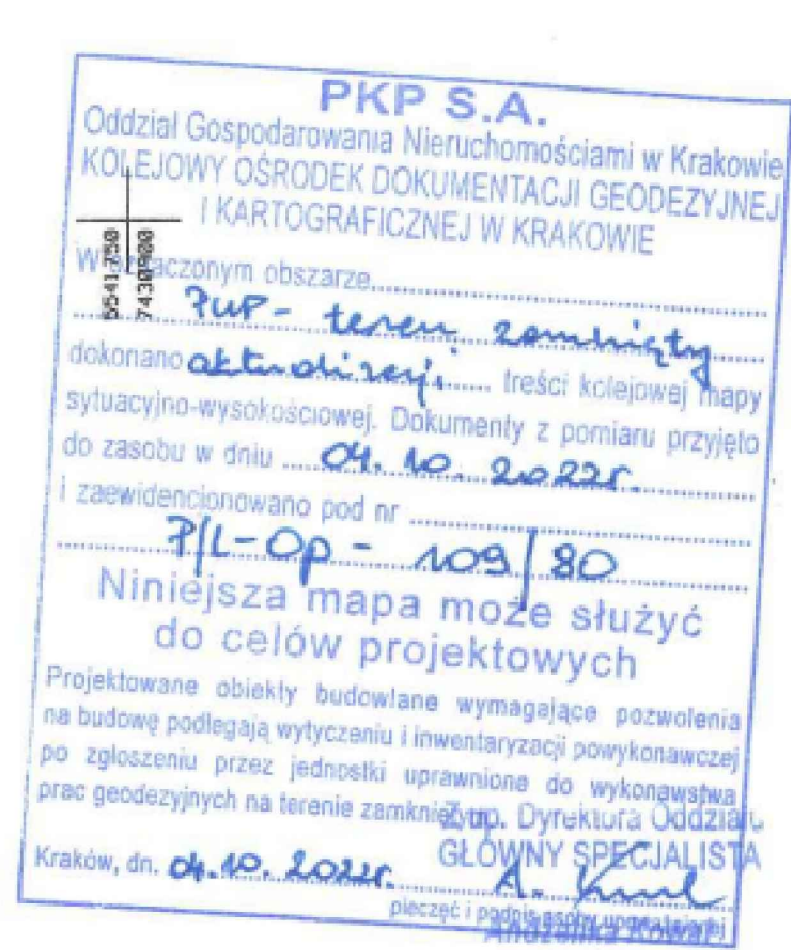 PKP S.A.
Oddział Gospodarowania Nieruchomościami w Krakowie
KOLEJOWY OŚRODEK DOKUMENTACJI GEODEZYJNEJ
I KARTOGRAFICZNEJ W KRAKOWIE
5541750
7430900
W oznaczonym obszarze
teren zamknięty
dokonano aktualizacji treści kolejowej mapy
sytuacyjno-wysokościowej. Dokumenty z pomiaru przyjęto
do zasobu w dniu 04.10.2022r.
i zaewidencjonowano pod nr
P/L-Op - 109/80
Niniejsza mapa może służyć
do celów projektowych
Projektowane obiekty budowlane wymagające pozwolenia
na budowę podlegają wytyczeniu i inwentaryzacji powykonawczej
po zgłoszeniu przez jednostki uprawnione do wykonawstwa
prac geodezyjnych na terenie zamkniętym.
Z up. Dyrektora Oddziału
GŁÓWNY SPECJALISTA
Kraków, dn. 04.10.2022r.
A.
pieczęć i podpis osoby